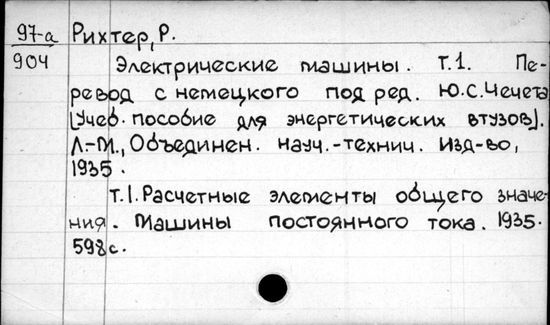 97-а Рихтер, Р.
904
Электрические машины. Т.1. Пе-
ревод с немецкого под ред. Ю.С.Чечета
[Учеб. пособие для энергетических втузов].
Л.-М., Объединен. науч.-технич. изд-во,
1935.
Т.1. Расчетные элементы общего значе-
ния. Машины постоянного тока. 1935.
598 с.